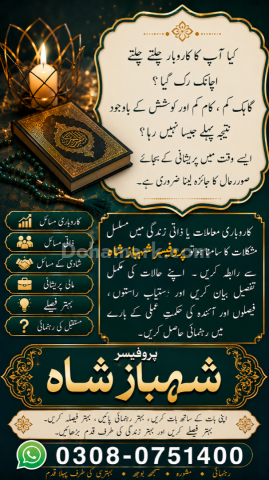 کیا آپ کا کاروبار چلتے چلتے
اچانک رک گیا ؟
گاہک کم ، کام کم اور کوشش کے باوجود
نتیجہ پہلے جیسا نہیں رہا ؟
ایسے وقت میں پریشانی کے بجائے
صورتحال کا جائزہ لینا ضروری ہے۔
کاروباری مسائل
ذاتی مسائل
شادی کے مسائل
مالی پریشانی
بہتر فیصلے
مستقبل کی رہنمائی
کاروباری معاملات یا ذاتی زندگی میں مسلسل
مشکلات کا سامنا ہے تو پروفیسر شہباز شاہ
سے رابطہ کریں ۔ اپنے حالات کی مکمل
تفصیل بیان کریں اور دستیاب راستوں ،
فیصلوں اور آئندہ کی حکمتِ عملی کے بارے
میں رہنمائی حاصل کریں۔
پروفیسر
شہباز شاہ
اپنی بات کے ساتھ بات کریں ، بہتر رہنمائی پائیں ، بہتر فیصلہ کریں۔
بہتر فیصلے کریں اور بہتر زندگی کی طرف قدم بڑھائیں۔
0308-0751400
رہنمائی • مشورہ • سمجھ بوجھ • بہتری کی طرف پہلا قدم